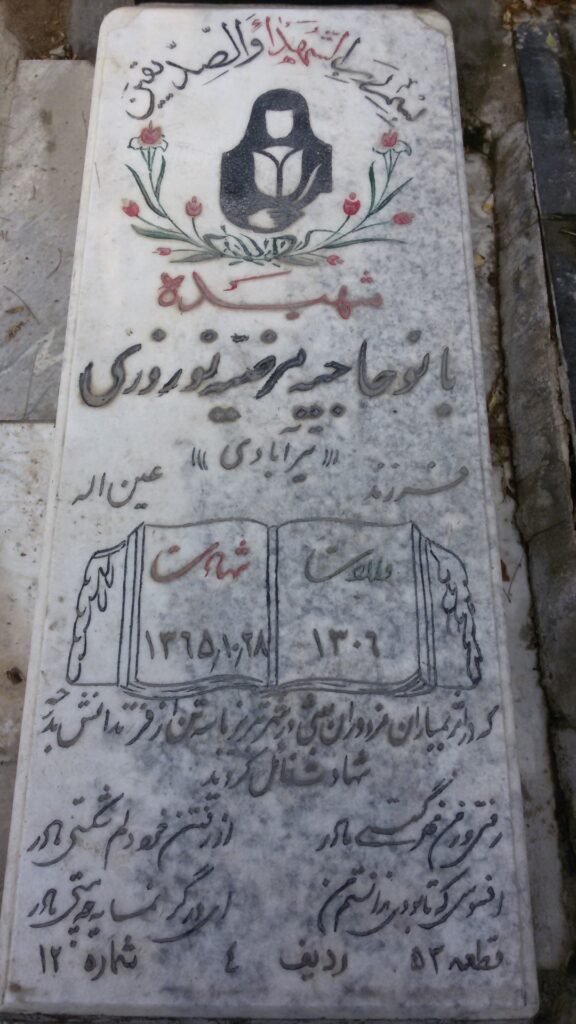 بسم رب الشهداء والصدیقین
شهیده
بانو حاجیه مرضیه نوروزی
((( تیرآبادی )))
فرزند عین اله
ولادت شهادت
۱۳۰۶ ۱۳۶۵,۱۰,۲۸
که در اثر بمباران مزدوران بعثی در شهر تبریز با سه تن از فرزندانش بدرجه
شهادت نائل گردید
رفتی و ز من مهر گسستی مادر از رفتن خود دلم شکستی مادر
افسوس که تا بودی ندانستم من ای در گرانمایه چه هستی مادر
قطعه ۵۲ ردیف ۴ شماره ۱۲